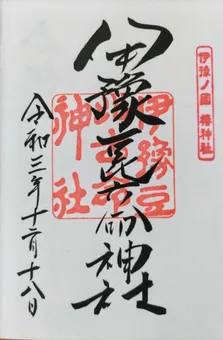 伊豫ノ國 椿神社
伊豫豆比古命神社
伊豫豆
比古命
神社
令和三年十二月十八日